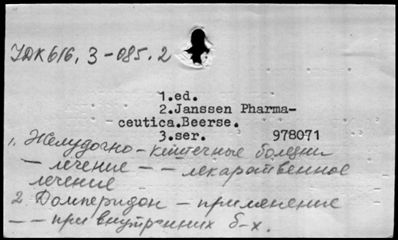 УДК 616.3-085.2
1.ed.
2.Janssen Pharma-
ceutica.Beerse.
3.ser. 978071
1. Желудочно-кишечные болезни
— лечение — — лекарственное
лечение
2. Домперидон — применение
— — при внутр-нних б-х.